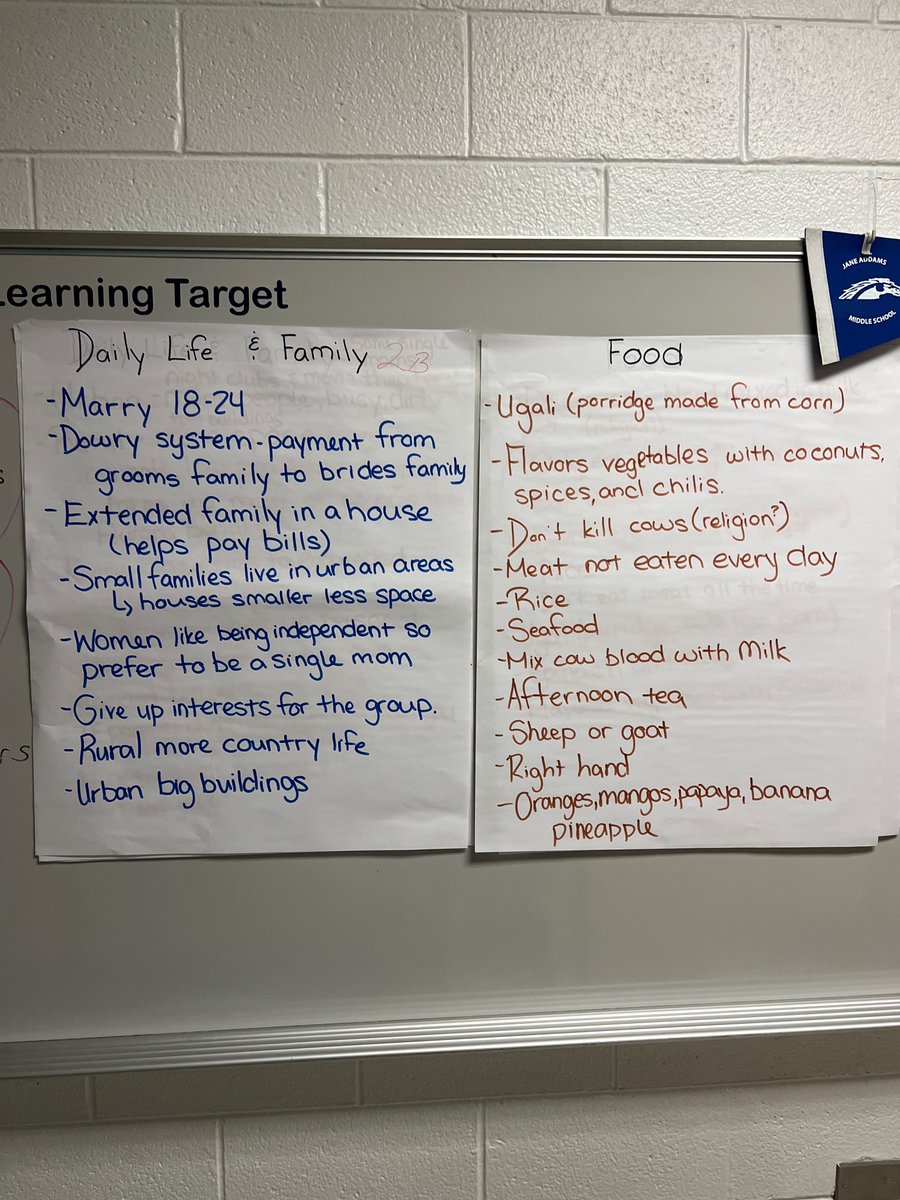 Learning Target
JANE ADDAMS
MIDDLE SCHOOL
Daily Life & Family 2B
- Marry 18-24
- Dowry system - payment from
grooms family to brides family
- Extended family in a house
(helps pay bills)
- Small families live in urban areas
↳ houses smaller less space
- Women like being independent so
prefer to be a single mom
- Give up interests for the group.
- Rural more country life
- Urban big buildings
Food
- Ugali (porridge made from corn)
- Flavors vegetables with coconuts,
spices, and chilis.
- Don't kill cows (religion?)
- Meat not eaten every day
- Rice
- Seafood
- Mix cow blood with milk
- Afternoon tea
- Sheep or goat
- Right hand
- Oranges, mangos, papaya, banana
pineapple